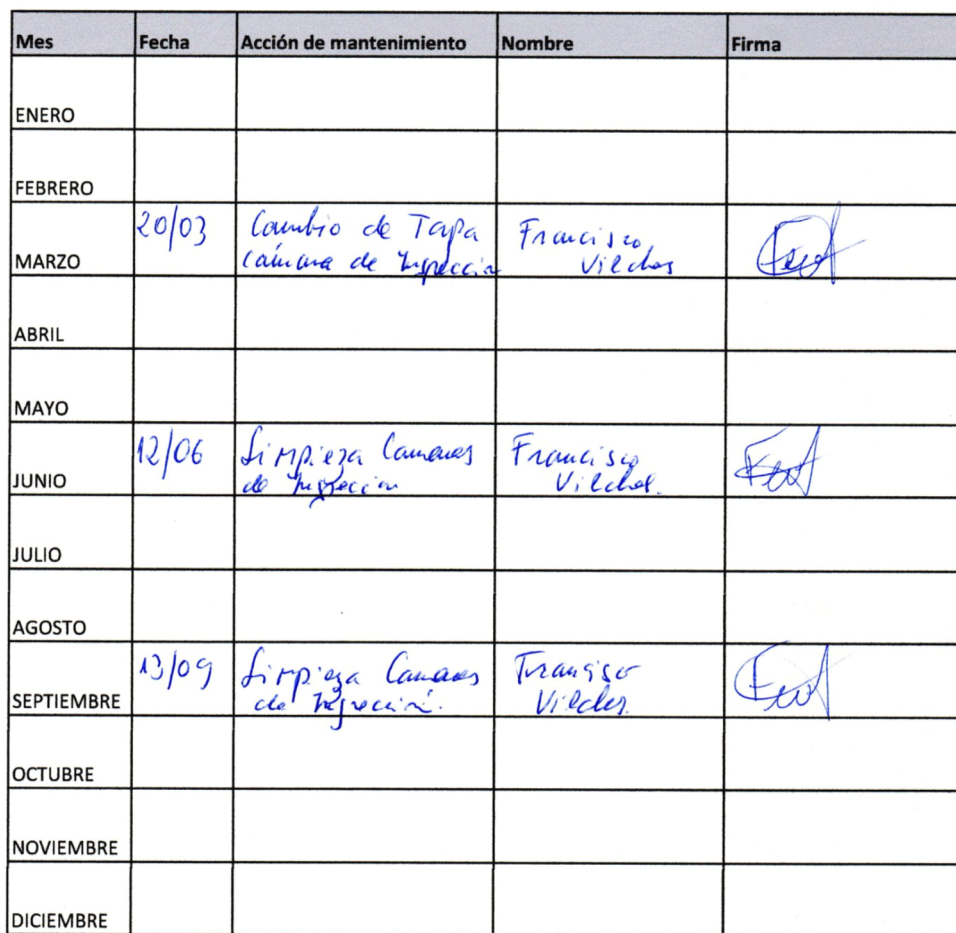 Mes Fecha Acción de mantenimiento Nombre Firma
ENERO
FEBRERO
MARZO 20/03 Cambio de Tapa Francisco
Cámara de Inspección Vilches
ABRIL
MAYO
JUNIO 12/06 Limpieza Camaras Francisco
de Inspeccion Vilches.
JULIO
AGOSTO
SEPTIEMBRE 13/09 Limpieza Camaras Francisco
de Inspección. Vilches.
OCTUBRE
NOVIEMBRE
DICIEMBRE